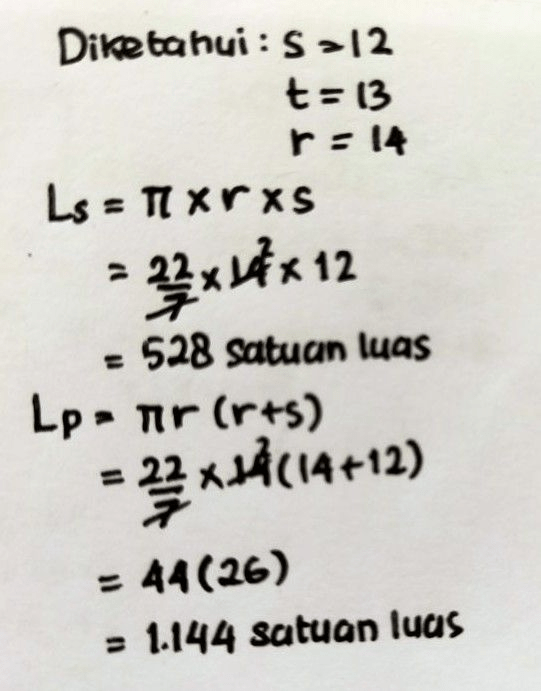 Diketahui : s = 12
t = 13
r = 14
Ls = π × r × s
= 22/7 × 14² × 12
= 528 satuan luas
Lp = πr (r+s)
= 22/7 × 14² (14+12)
= 44 (26)
= 1.144 satuan luas